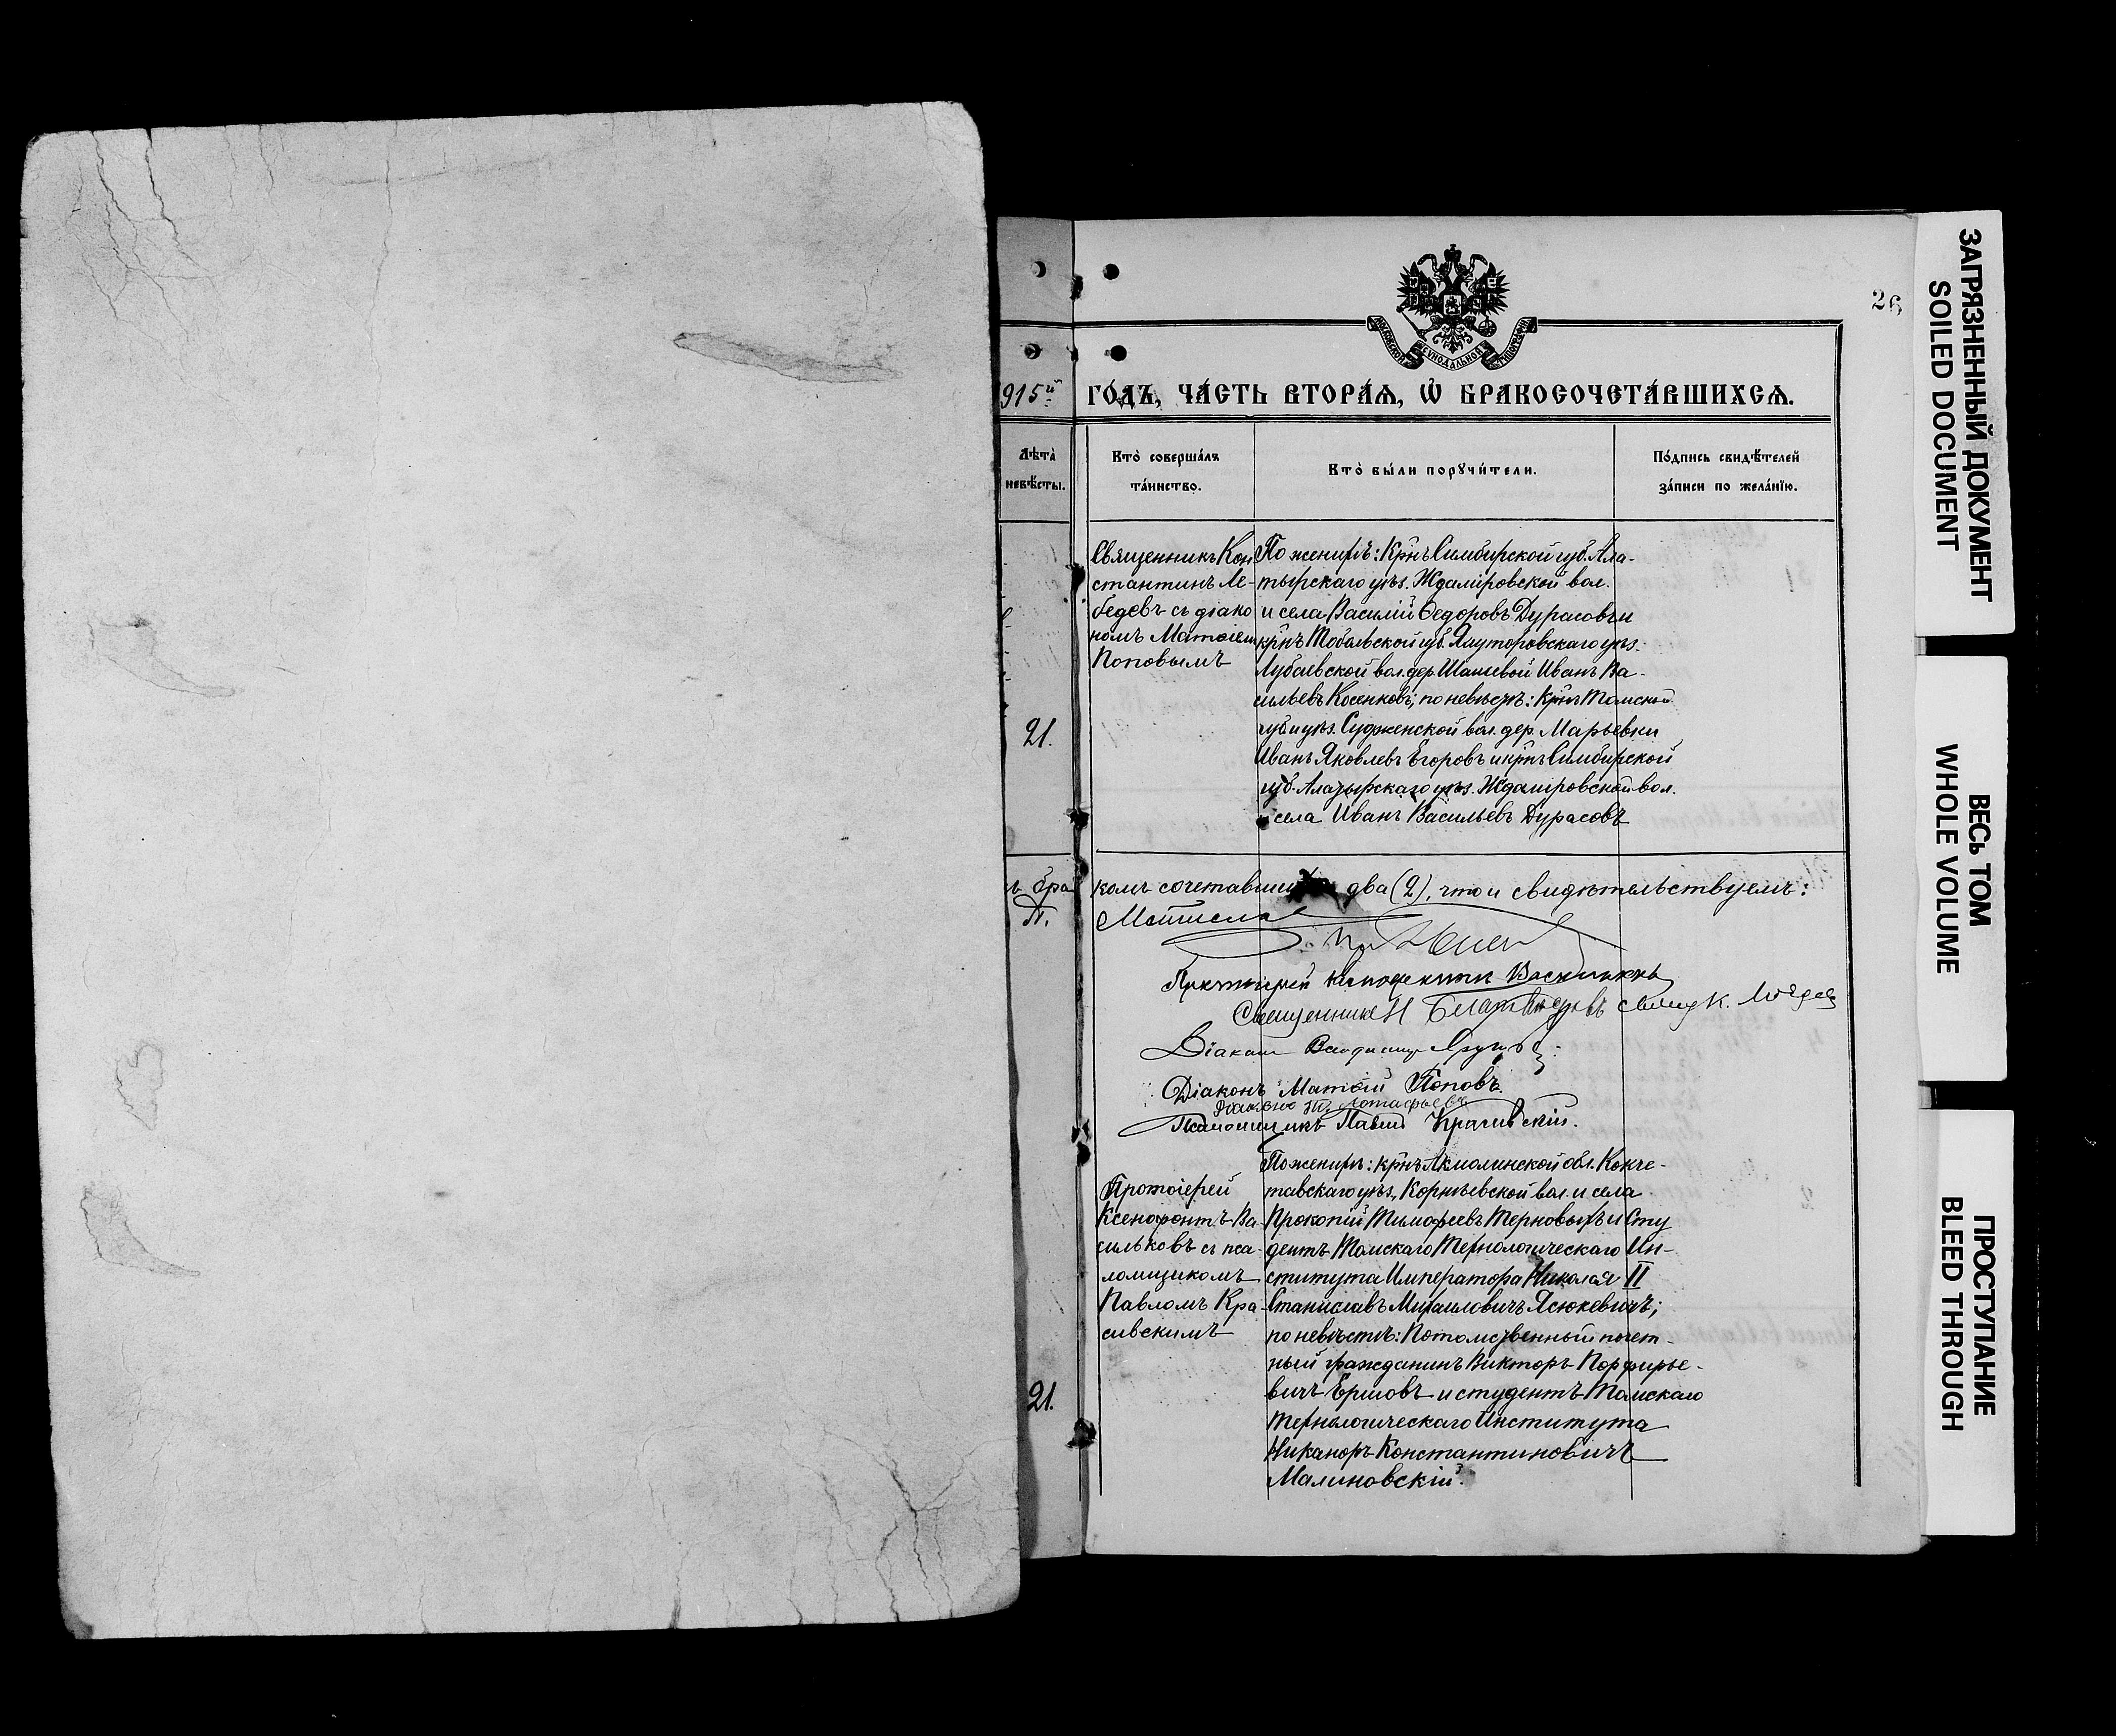 26
МОСКОВСКОЙ СУНОДАЛЬНОЙ ТИПОГРАФІИ
915й ГОДЪ, ЧАСТЬ ВТОРАЯ, Ѡ БРАКОСОЧЕТАВШИХСЯ.
Лѣта невѣсты.
Кто совершалъ таинство.
Кто были поручители.
Подпись свидѣтелей записи по желанїю.
21.
Священникъ Кон
стантинъ Ле-
бедевъ съ діако
номъ Матѳіем
Поповымъ
По женихѣ: Крнъ Симбирской губ. Ала-
тырскаго уѣз. Ждаміровской вол.
и села Василій Ѳедоровъ Дурасовъ и
крнъ Тобольской губ. Ялуторовскаго уѣз.
Лыбаевской вол. дер. Иванъ Ва-
сильевъ Косенковъ; по невѣстѣ: Крнъ Томской
губ. и уѣз. Судженской вол. дер. Марьевки
Иванъ Яковлевъ Егоровъ и крнъ Симбирской
губ. Алатырскаго уѣз. Ждаміровской вол.
и села Иванъ Васильевъ Дурасовъ
ъ бра комъ сочетавши два (2), что и свидѣтельствуемъ:
Протоіерей Ксенофонтъ Васильковъ
Священникъ Н
Діаконъ
Діаконъ Матѳій Поповъ.
Псаломщикъ Павелъ Красивскій.
21.
Протоіерей
Ксенофонтъ Ва-
сильковъ съ пса-
ломщикомъ
Павломъ Кра-
сивскимъ
По женихѣ: крнъ Акмолинской обл. Кокче-
тавскаго уѣз., Корнѣевской вол. и села
Прокопій Тимофеевъ Терновыхъ и Сту
дентъ Томскаго Технологическаго Ин-
ститута Императора Николая II
Станиславъ Михаиловичъ Ясюкевичъ;
по невѣстѣ: Потомственный почет-
ный гражданинъ Викторъ Порфирье-
вичъ Ершовъ и студентъ Томскаго
Технологическаго Института
Никаноръ Константиновичъ
Малиновскій.
ЗАГРЯЗНЕННЫЙ ДОКУМЕНТ
SOILED DOCUMENT
ВЕСЬ ТОМ
WHOLE VOLUME
ПРОСТУПАНИЕ
BLEED THROUGH